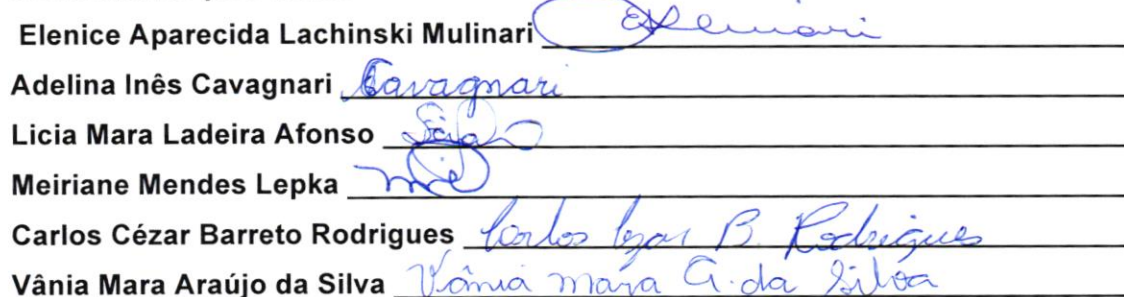 Elenice Aparecida Lachinski Mulinari
Adelina Inês Cavagnari Cavagnari
Licia Mara Ladeira Afonso
Meiriane Mendes Lepka
Carlos Cézar Barreto Rodrigues Carlos Cezar B. Rodrigues
Vânia Mara Araújo da Silva Vânia Mara A. da Silva